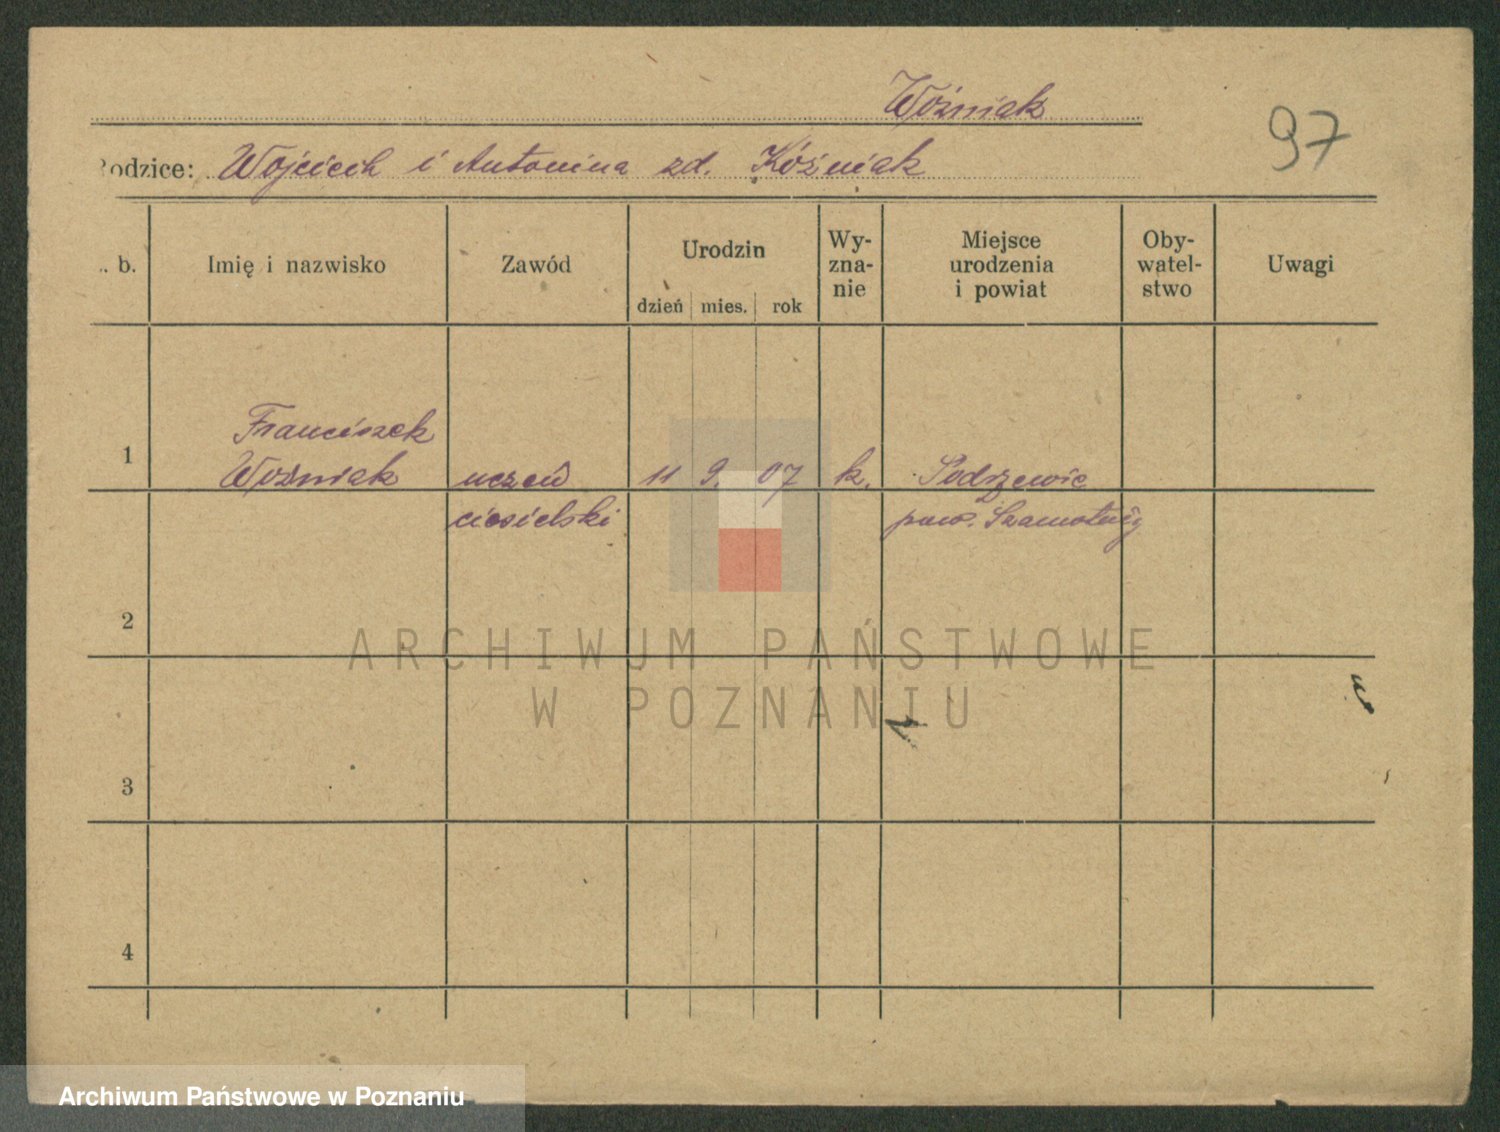 Woźniak
97
Rodzice: Wojciech i Antonina zd. Kóźniak
. b.
Imię i nazwisko
Zawód
Urodzin
dzień mies. rok
Wy-
zna-
nie
Miejsce
urodzenia
i powiat
Oby-
watel-
stwo
Uwagi
1
Franciszek
Woźniak
uczeń
ciesielski
11 9. 07 k.
Podrzewie
pow. Szamotuły
2
3
4
ARCHIWUM PAŃSTWOWE
W POZNANIU
Archiwum Państwowe w Poznaniu